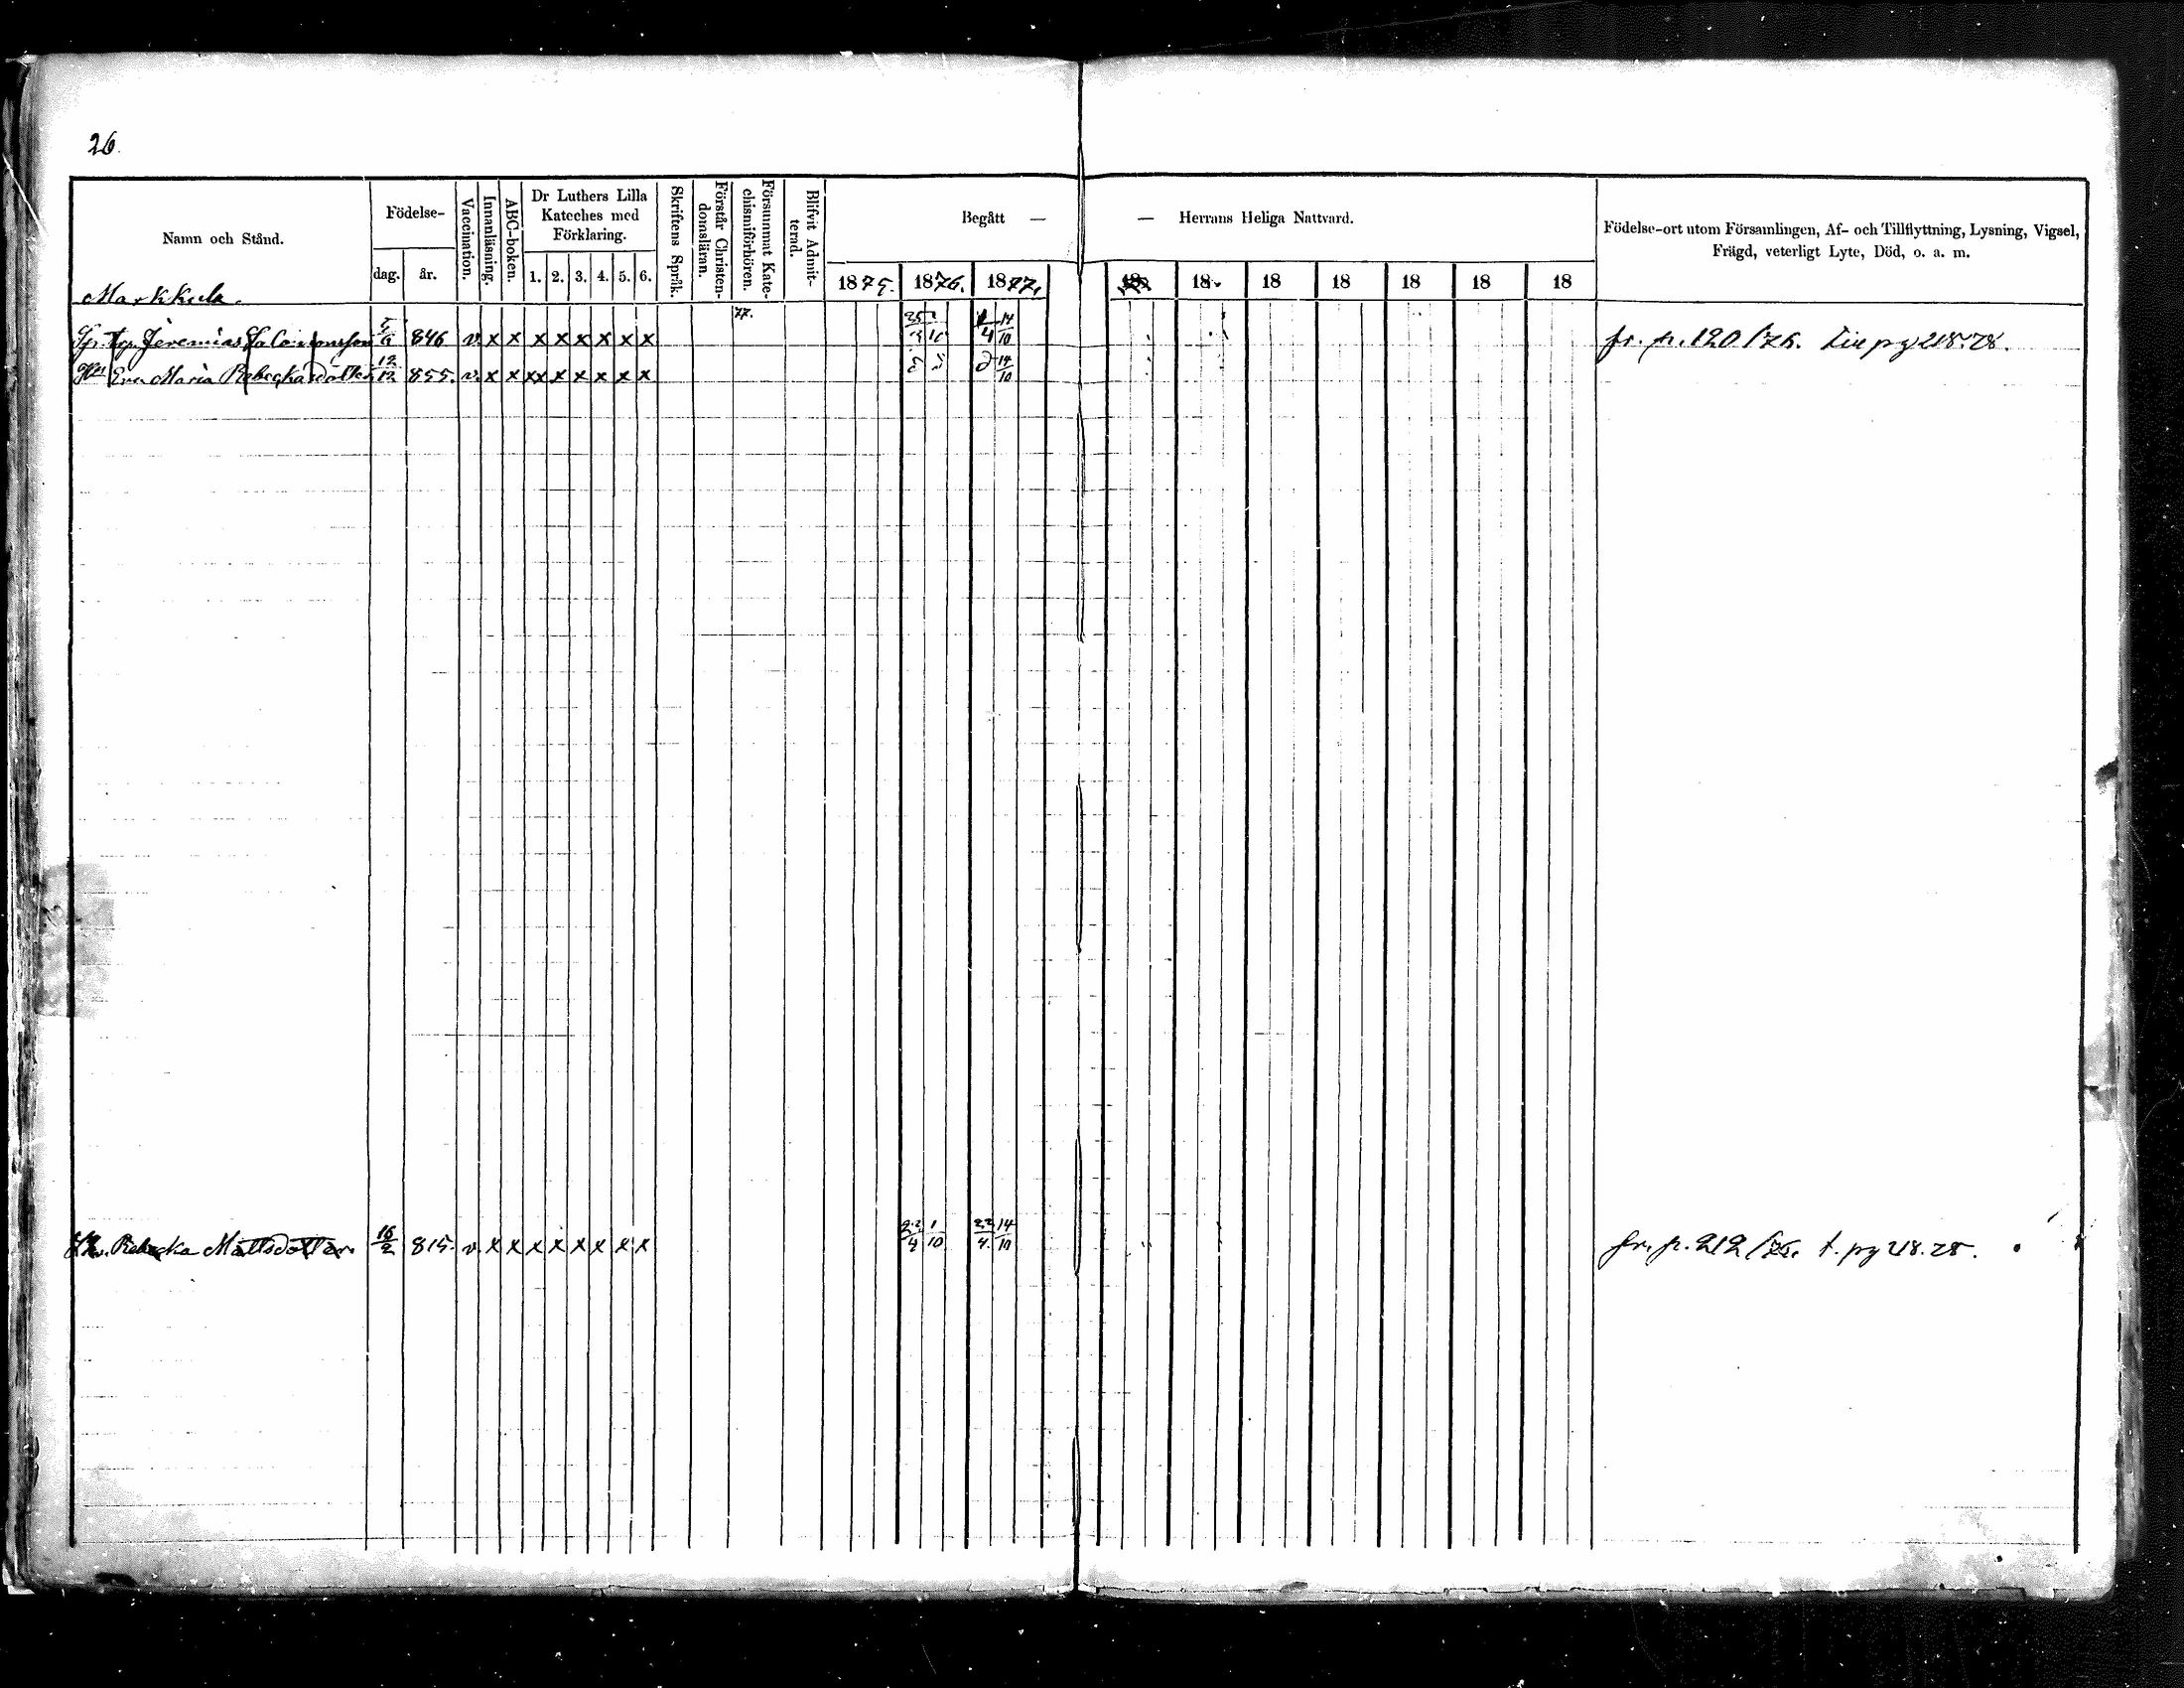 26.
Namn och Stånd. Födelse- dag. år. Vaccination. Innanläsning. ABC-boken. Dr Luthers Lilla Kateches med Förklaring. 1. 2. 3. 4. 5. 6. Skriftens Språk. Förstår Christen-domsläran. Försummat Kate-chismiförhören. Blifvit Admit-terad. Begått — — Herrans Heliga Nattvard. Födelse-ort utom Församlingen, Af- och Tillflyttning, Lysning, Vigsel, Frägd, veterligt Lyte, Död, o. a. m.
1875. 1876. 1877. 18 18 18 18 18 18
Markkula.
77.
Jeremias Salomonsson 846 v. x x x x x x x x 14/10 fr. p. 120/76. pg 218.78.
Hu Eva Maria Rebeckasdotter 12/12 855. v. x x xx x x x x x 14/10
Rebecka Mattsdotter 16/2 815. v. x x x x x x x x 22/4 1/10 22/4 14/10 fr. p. 212/75. t. pg 218.78.